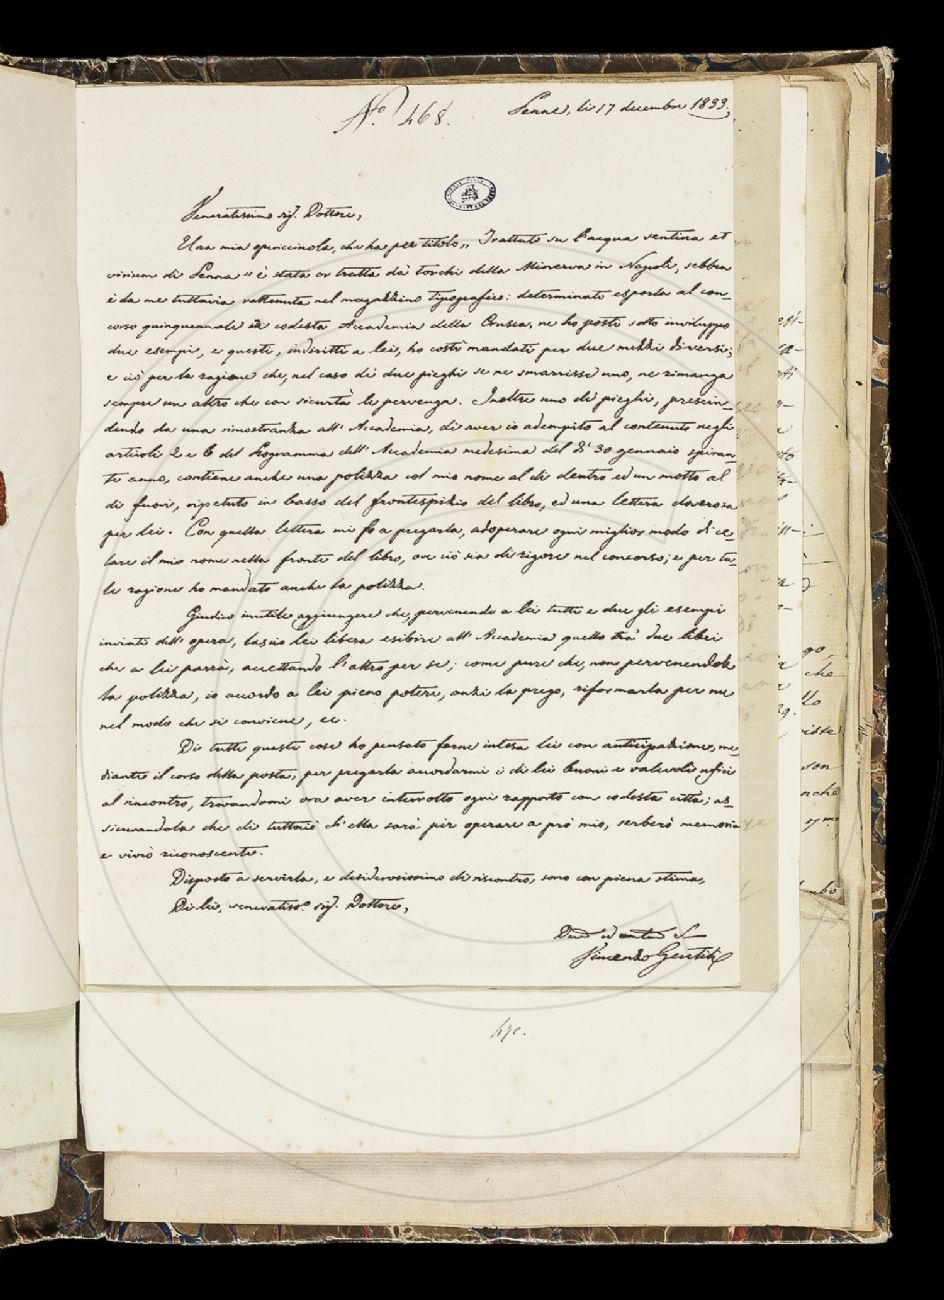 N.° 468.
Penne, li 17 decembre 1833.
Veneratissimo sig.r Dottore,
Una mia opericcinola, che ha per titolo „ Trattato su l'acqua sentina et
vinium di Penna „ è stata or tratta dà torchi della Minerva in Napoli, sebben
è da me tuttavia rattenuta nel magazzino tipografico: determinato esporla al con-
corso quinquennale di codesta Accademia della Crusca, ne ho posti sotto inviluppo
due esempi, e questi, indiritti a lei, ho costì mandati per due mezzi diversi;
e ciò per la ragione che, nel caso di due pieghi se ne smarrisse uno, ne rimanga
sempre un altro che con sicurtà le pervenga. Inoltre uno di pieghi, prescin-
dendo da una rimostranza all' Accademia, di aver io adempito al contenuto negli
articoli 2 e 6 del Programma dell' Accademia medesima del dì 30 gennaio spiran-
te anno, contiene anche una polizza col mio nome al di dentro ed un motto al
di fuori, ripetuto in basso del frontespizio del libro, ed una lettera doverosa
per lei. Con quella lettera mi fo a pregarla, adoperare ogni miglior modo di ce-
lare il mio nome nella fronte del libro, ove ciò sia di rigore nel concorso; e per ta-
le ragione ho mandato anche la polizza.
Giudico inutile aggiungere che, pervenendo a lei tutti e due gli esempi
inviati dell' opera, lascio lei libera esibire all' Accademia quello trà due libri
che a lei parrà, accettando l'altro per se; come pure che, non pervenendole
la polizza, io accordo a lei pieno potere, anzi la prego, riformarla per me
nel modo che si conviene, ec.
Di tutte queste cose ho pensato farne intesa lei con anticipazione, me-
diante il corso della posta, per pregarla accordarmi i di lei buoni e valevoli ufici
al rincontro, trovandomi ora aver interrotto ogni rapporto con codesta città; as-
sicurandola che di tuttociò ch'ella sarà per operare a prò mio, serberò memoria
e vivrò riconoscente.
Disposto a servirla, e desiderosissimo di riscontro, sono con piena stima,
Di lei, veneratiss.° sig.r Dottore,
Vincenzo Gentili
470.